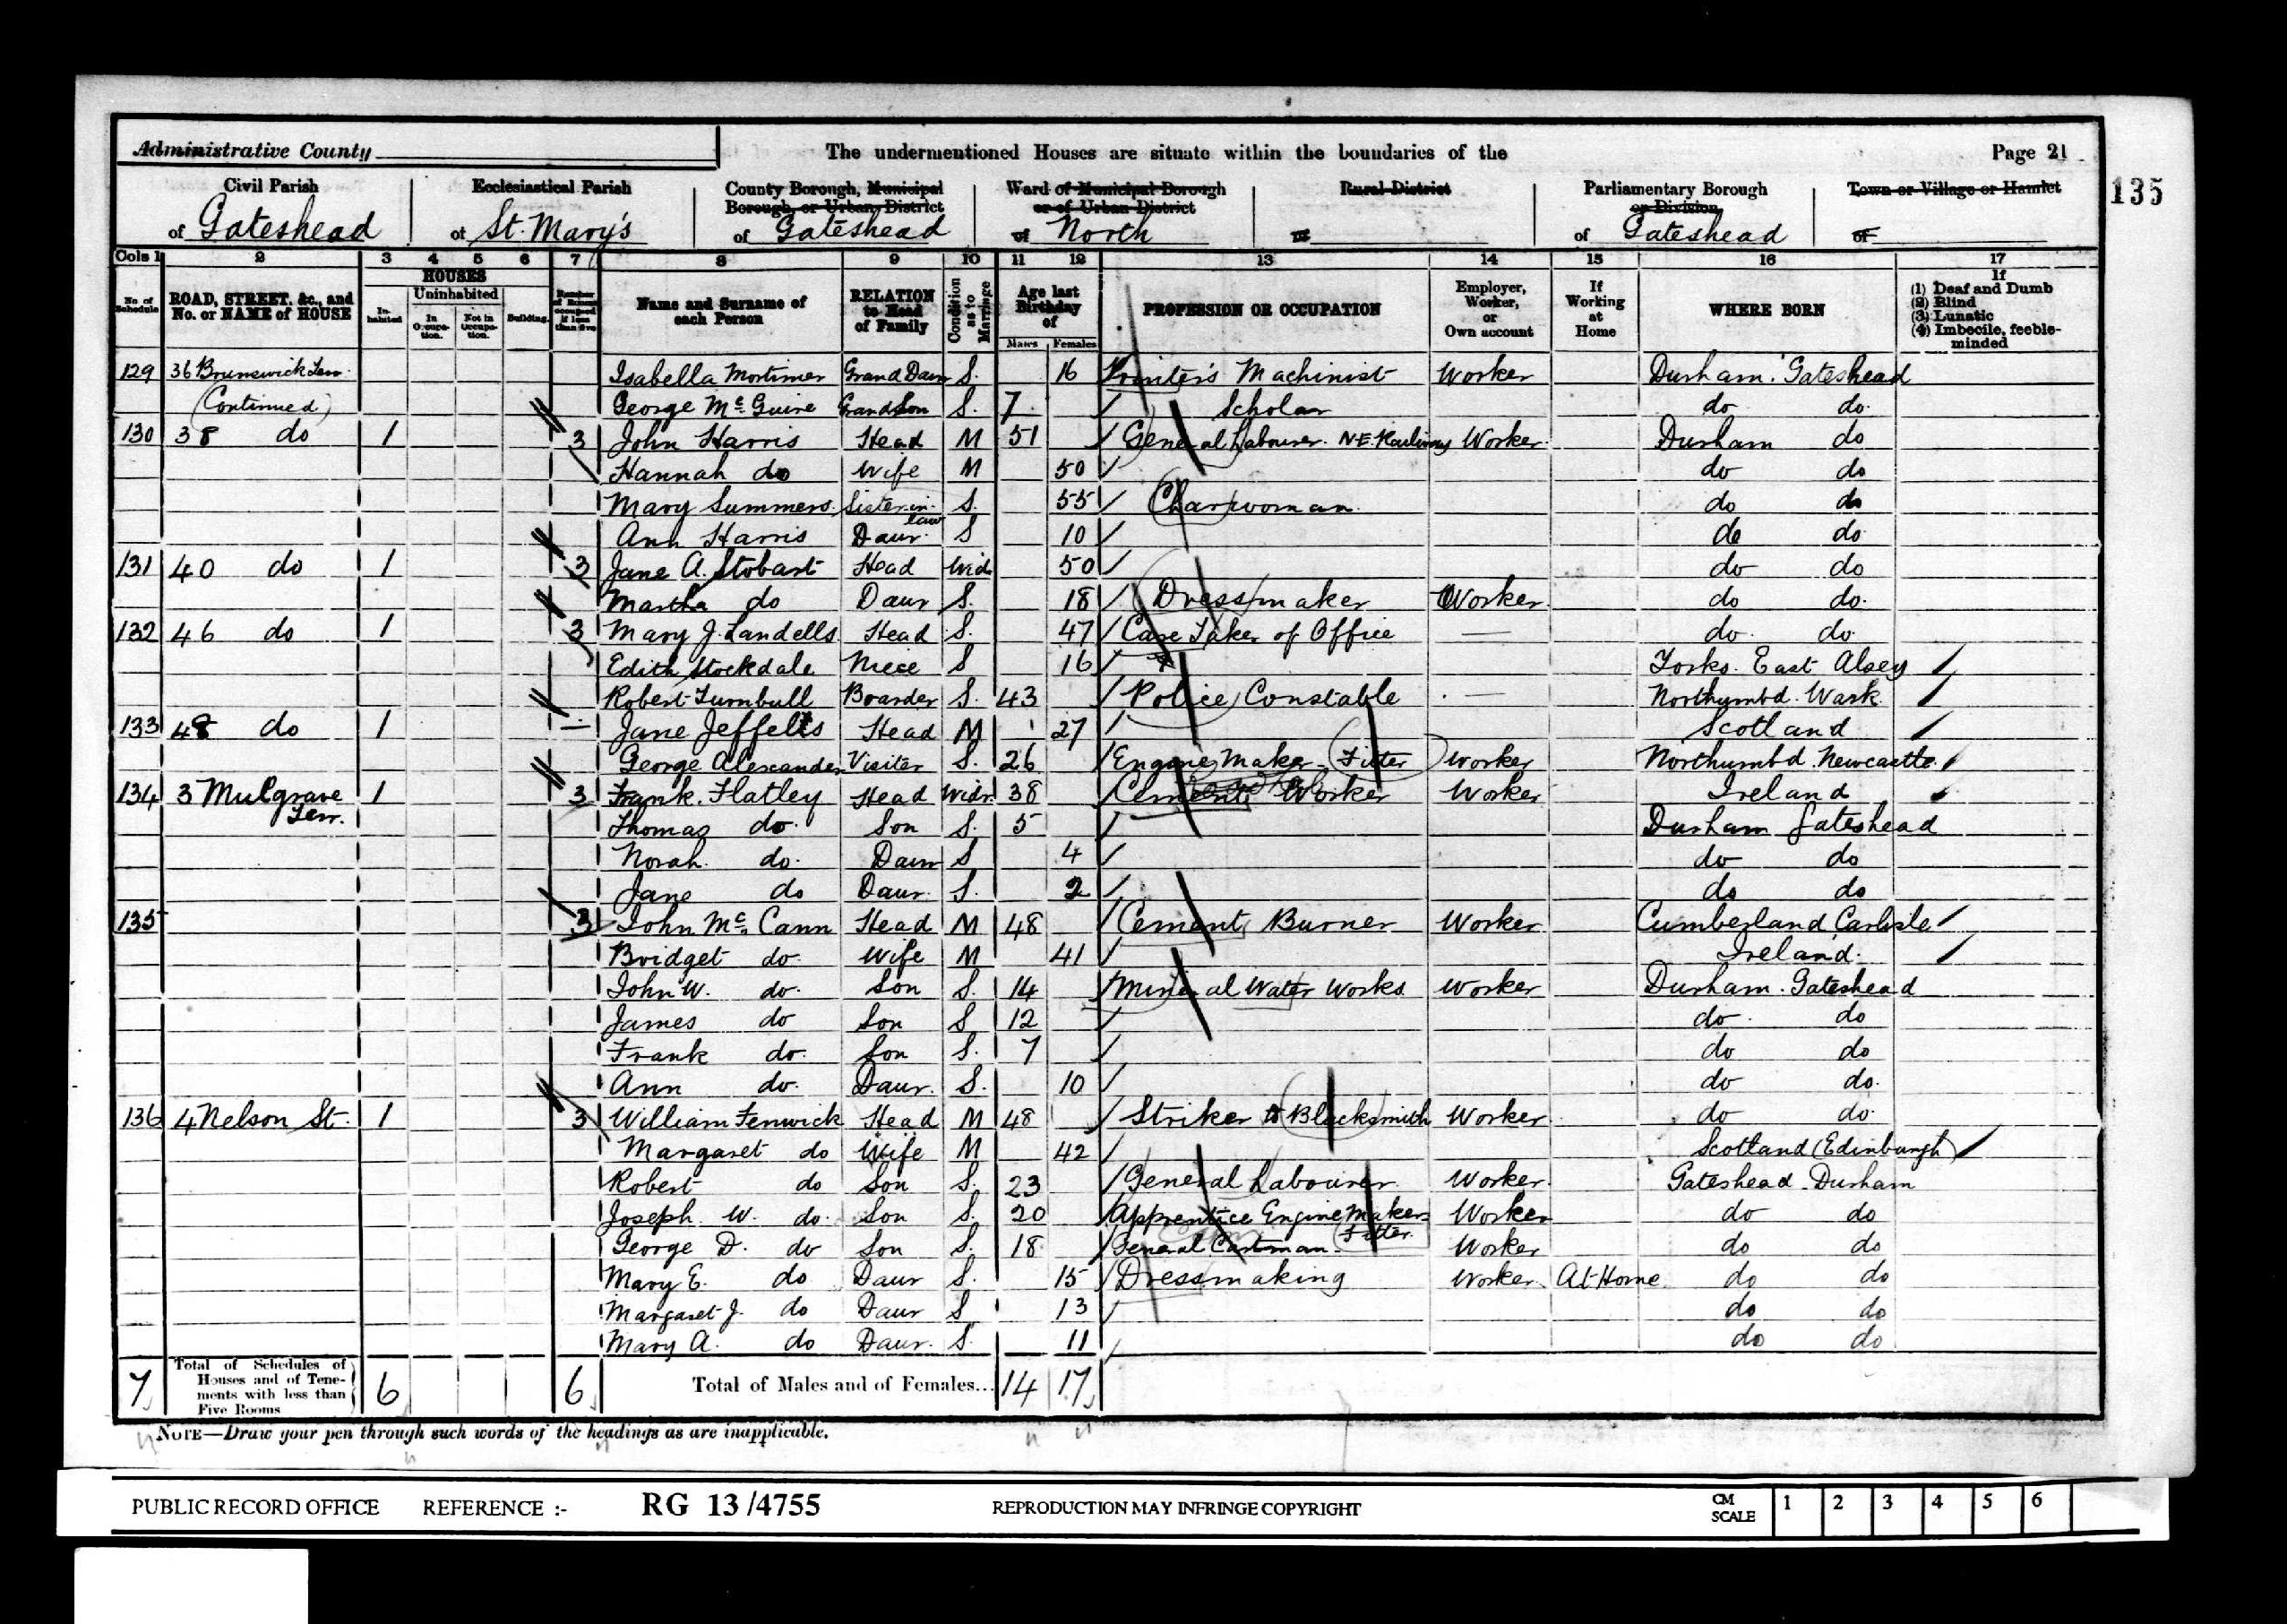 Administrative County
The undermentioned Houses are situate within the boundaries of the
Page 21
135
Civil Parish of Gateshead
Ecclesiastical Parish of St. Mary's
County Borough, Municipal Borough, or Urban District of Gateshead
Ward of Municipal Borough or of Urban District of North
Rural District of
Parliamentary Borough or Division of Gateshead
Town or Village or Hamlet of
Cols 1 2 3 4 5 6 7 8 9 10 11 12 13 14 15 16 17
No. of Schedule
ROAD, STREET, &c., and No. or NAME of HOUSE
HOUSES
Inhabited
Uninhabited
In Occupation.
Not in Occupation.
Building
Number of Rooms occupied if less than five
Name and Surname of each Person
RELATION to Head of Family
Condition as to Marriage
Age last Birthday of
Males Females
PROFESSION OR OCCUPATION
Employer, Worker, or Own account
If Working at Home
WHERE BORN
If (1) Deaf and Dumb (2) Blind (3) Lunatic (4) Imbecile, feeble-minded
129 36 Brunswick Terr. Isabella Mortimer Grand Daur S. 16 Printer's Machinist Worker Durham. Gateshead
(Continued) George Mc Guire Grand Son S. 7 Scholar do do
130 38 do 1 3 John Harris Head M 51 General Labourer. N.E. Railway Worker Durham do
Hannah do Wife M 50 do do
Mary Summers Sister-in-law S. 55 Charwoman do do
Ann Harris Daur. S 10 do do
131 40 do 1 3 Jane A. Stobart Head Wid 50 do do
Martha do Daur S. 18 Dressmaker Worker do do.
132 46 do 1 3 Mary J. Landells Head S. 47 Care Taker of Office — do. do.
Edith Stockdale Niece S 16 Yorks. East
Robert Turnbull Boarder S. 43 Police Constable — Northumbd. Wark
133 48 do 1 — Jane Head M 27 Scotland
George Alexander Visiter S. 26 Engine Maker - Fitter Worker Northumbd. Newcastle
134 3 Mulgrave Terr. 1 3 Frank Flatley Head Widr. 38 Cement Worker Worker Ireland
Thomas do. Son S. 5 Durham Gateshead
Norah. do. Daur S 4 do do
Jane do Daur. S. 2 do do
135 3 John Mc Cann Head M 48 Cement Burner Worker Cumberland Carlisle
Bridget do. Wife M 41 Ireland.
John W. do. Son S. 14 Mineral Water Works Worker Durham. Gateshead
James do Son S 12 do. do
Frank do. Son S. 7 do do
Ann do. Daur. S. 10 do do.
136 4 Nelson St. 1 3 William Fenwick Head M 48 Striker to Blacksmith Worker do do.
Margaret do Wife M 42 Scotland (Edinburgh)
Robert do Son S. 23 General Labourer Worker Gateshead. Durham
Joseph W. do. Son S. 20 Apprentice Engine Makers Fitter Worker do do
George D. do Son S. 18 General Cartman Worker do do
Mary E. do Daur S. 15 Dressmaking Worker At Home do do
Margaret J. do Daur S 13 do do
Mary A. do Daur. S. 11 do do
7 Total of Schedules of Houses and of Tenements with less than Five Rooms 6 6 Total of Males and of Females... 14 17
NOTE—Draw your pen through such words of the headings as are inapplicable.
PUBLIC RECORD OFFICE REFERENCE :- RG 13/4755 REPRODUCTION MAY INFRINGE COPYRIGHT CM SCALE 1 2 3 4 5 6